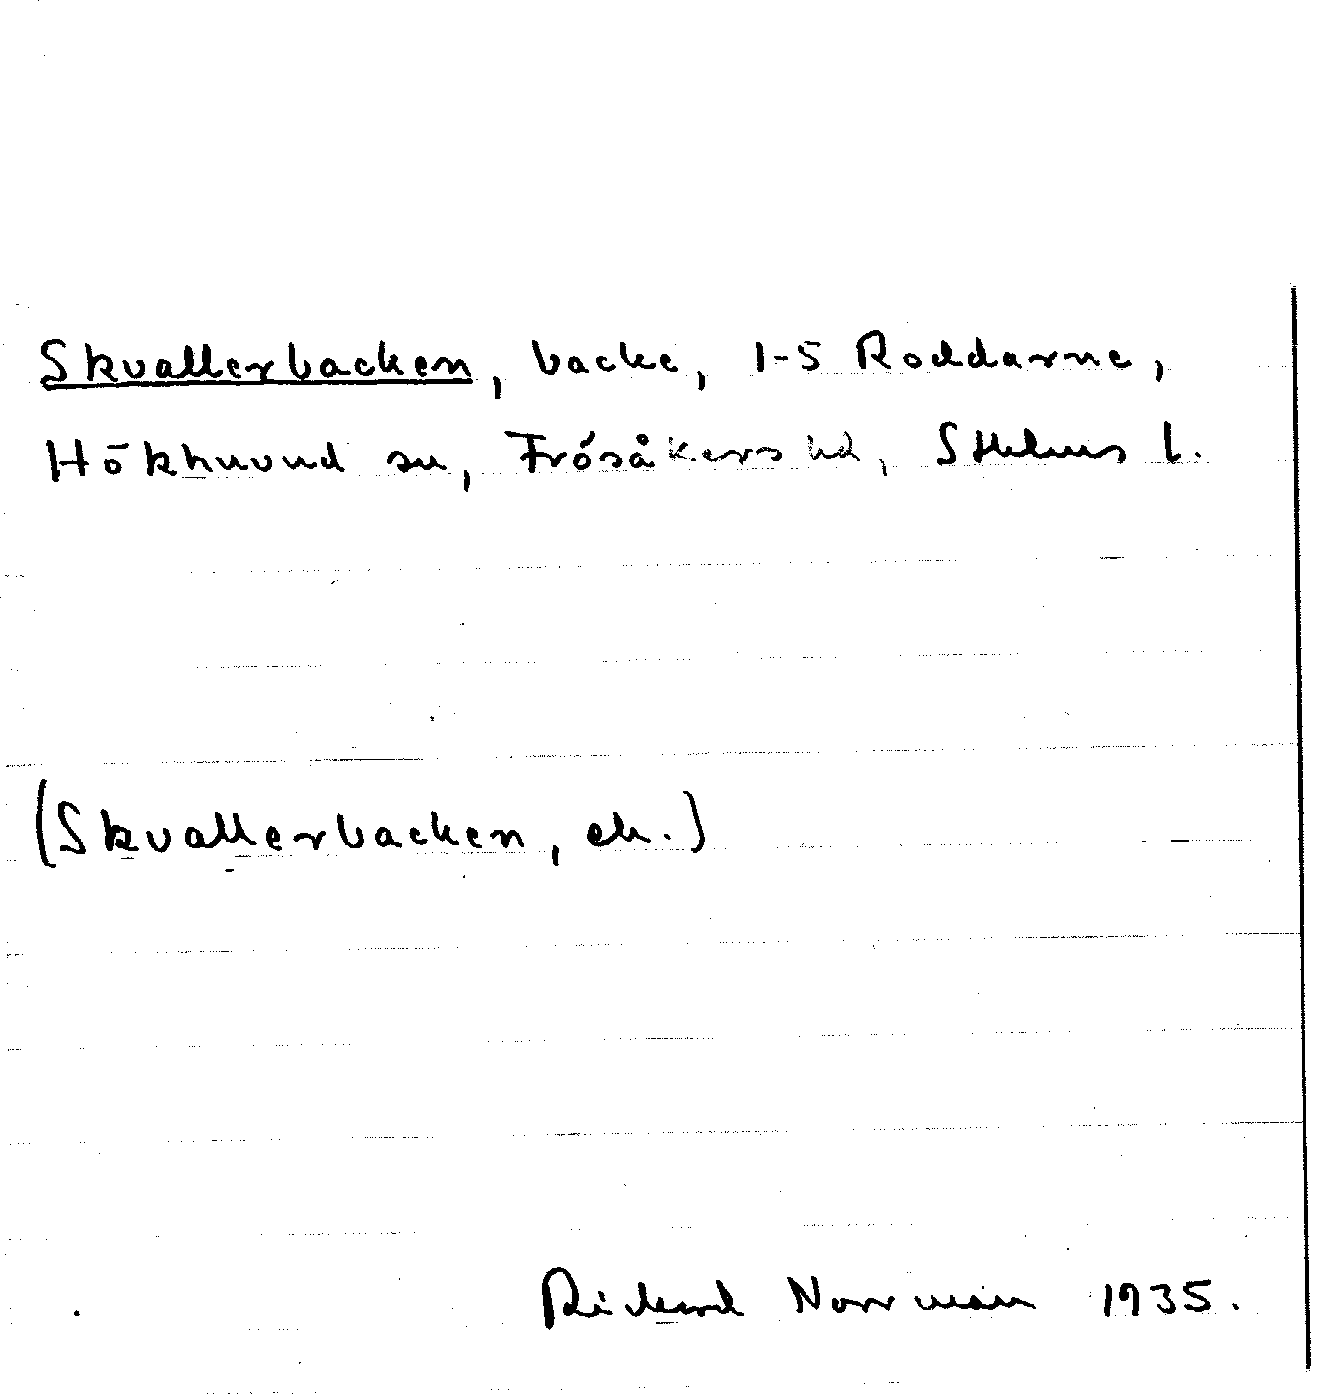 Skvallerbacken, backe, 1-5 Roddarne,
Hökhuvud sn, Frösåkers hd, Sthlms l.
(Skvallerbacken, ek.)
Rickard Norrman 1935.